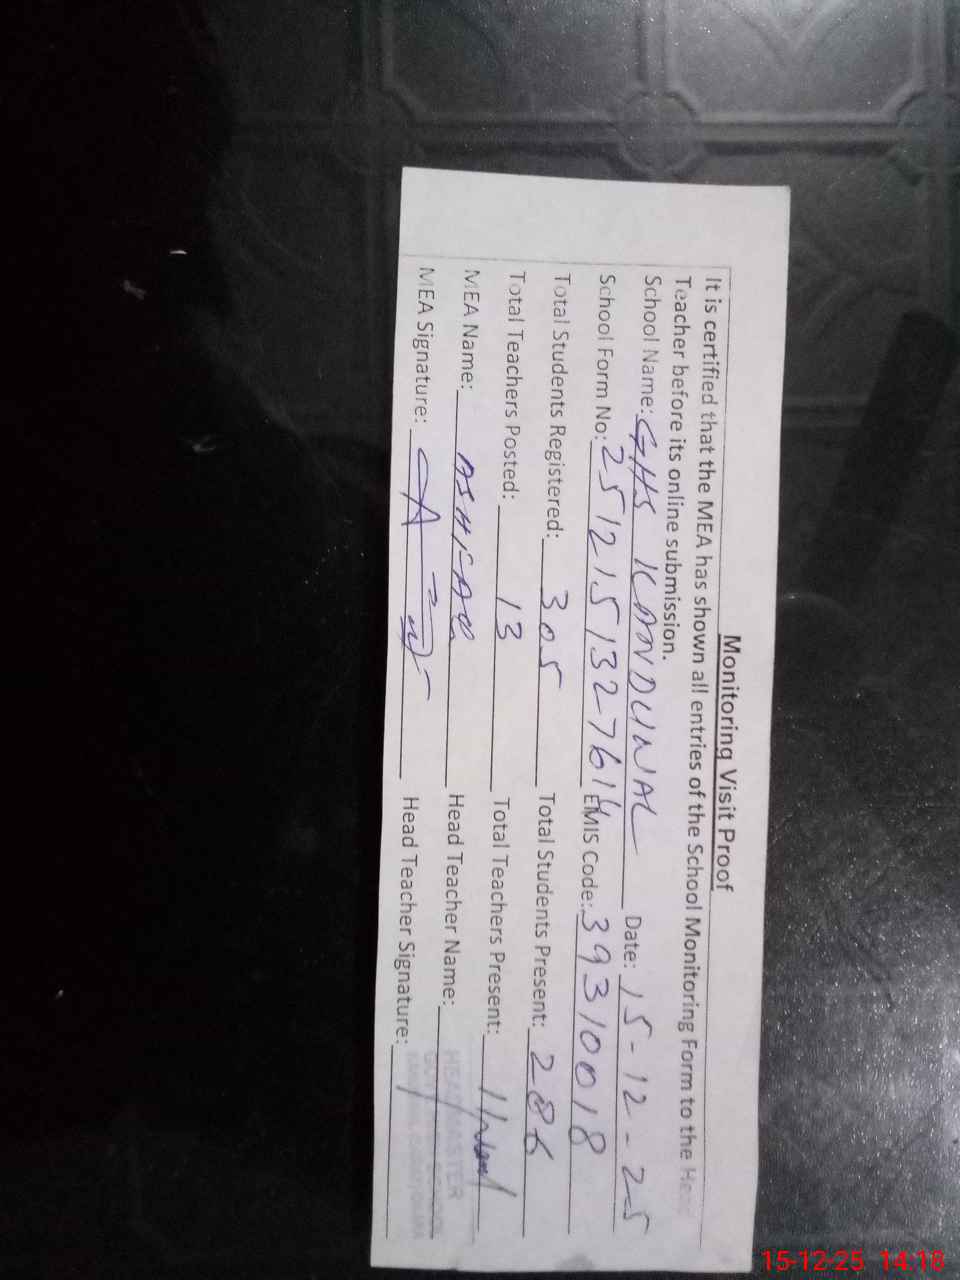 Monitoring Visit Proof
It is certified that the MEA has shown all entries of the School Monitoring Form to the Head
Teacher before its online submission.
School Name: GHS KANDUWAL Date: 15-12-25
School Form No: EMIS Code: 39310018
Total Students Registered: 305 Total Students Present: 286
Total Teachers Posted: 13 Total Teachers Present: 11
MEA Name: ASHFAQ Head Teacher Name:
MEA Signature: Head Teacher Signature:
HEADMASTER
15-12-25 14:18